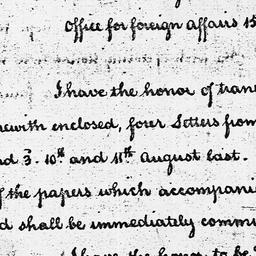 Office for foreign affairs 15
I have the honor of tran
ewith enclosed, four Letters from
nd 3. 10th and 11th August last.
f the papers which accompani
d shall be immediately commu
I have the honor to be